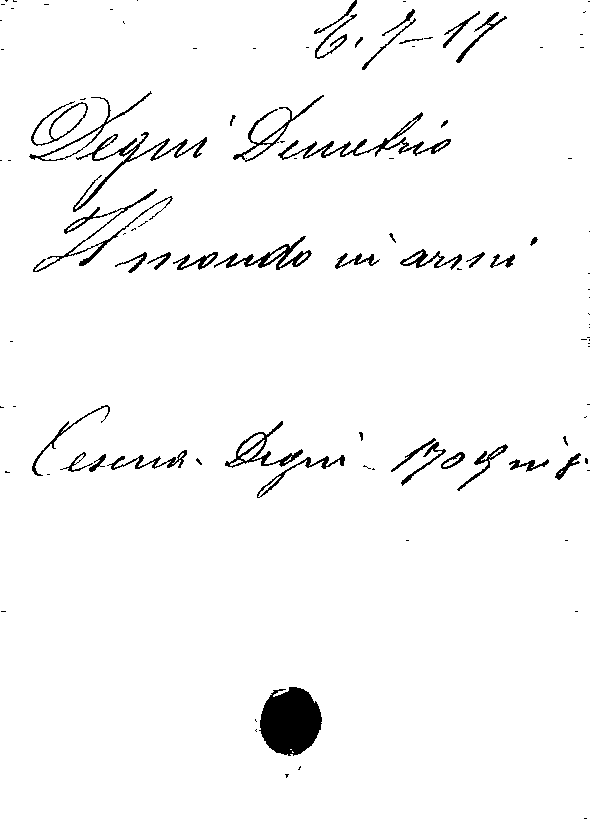 E. 7-17
Degni Demetrio
Il mondo in armi
Cesena. Degni - 1709 in 8.